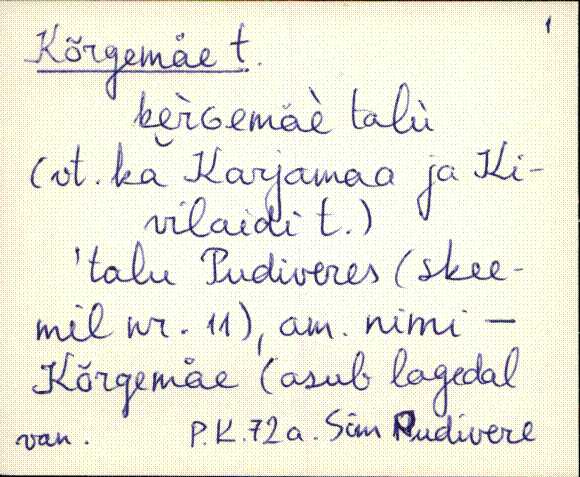 1
Kõrgemäe t.
kèrGemäè talù
(vt. ka Karjamaa ja Ki-
vilaidi t.)
'talu Pudiveres (skee-
mil nr. 11), am. nimi –
Kõrgemäe (asub lagedal
van. P.K.72a. Sim Pudivere